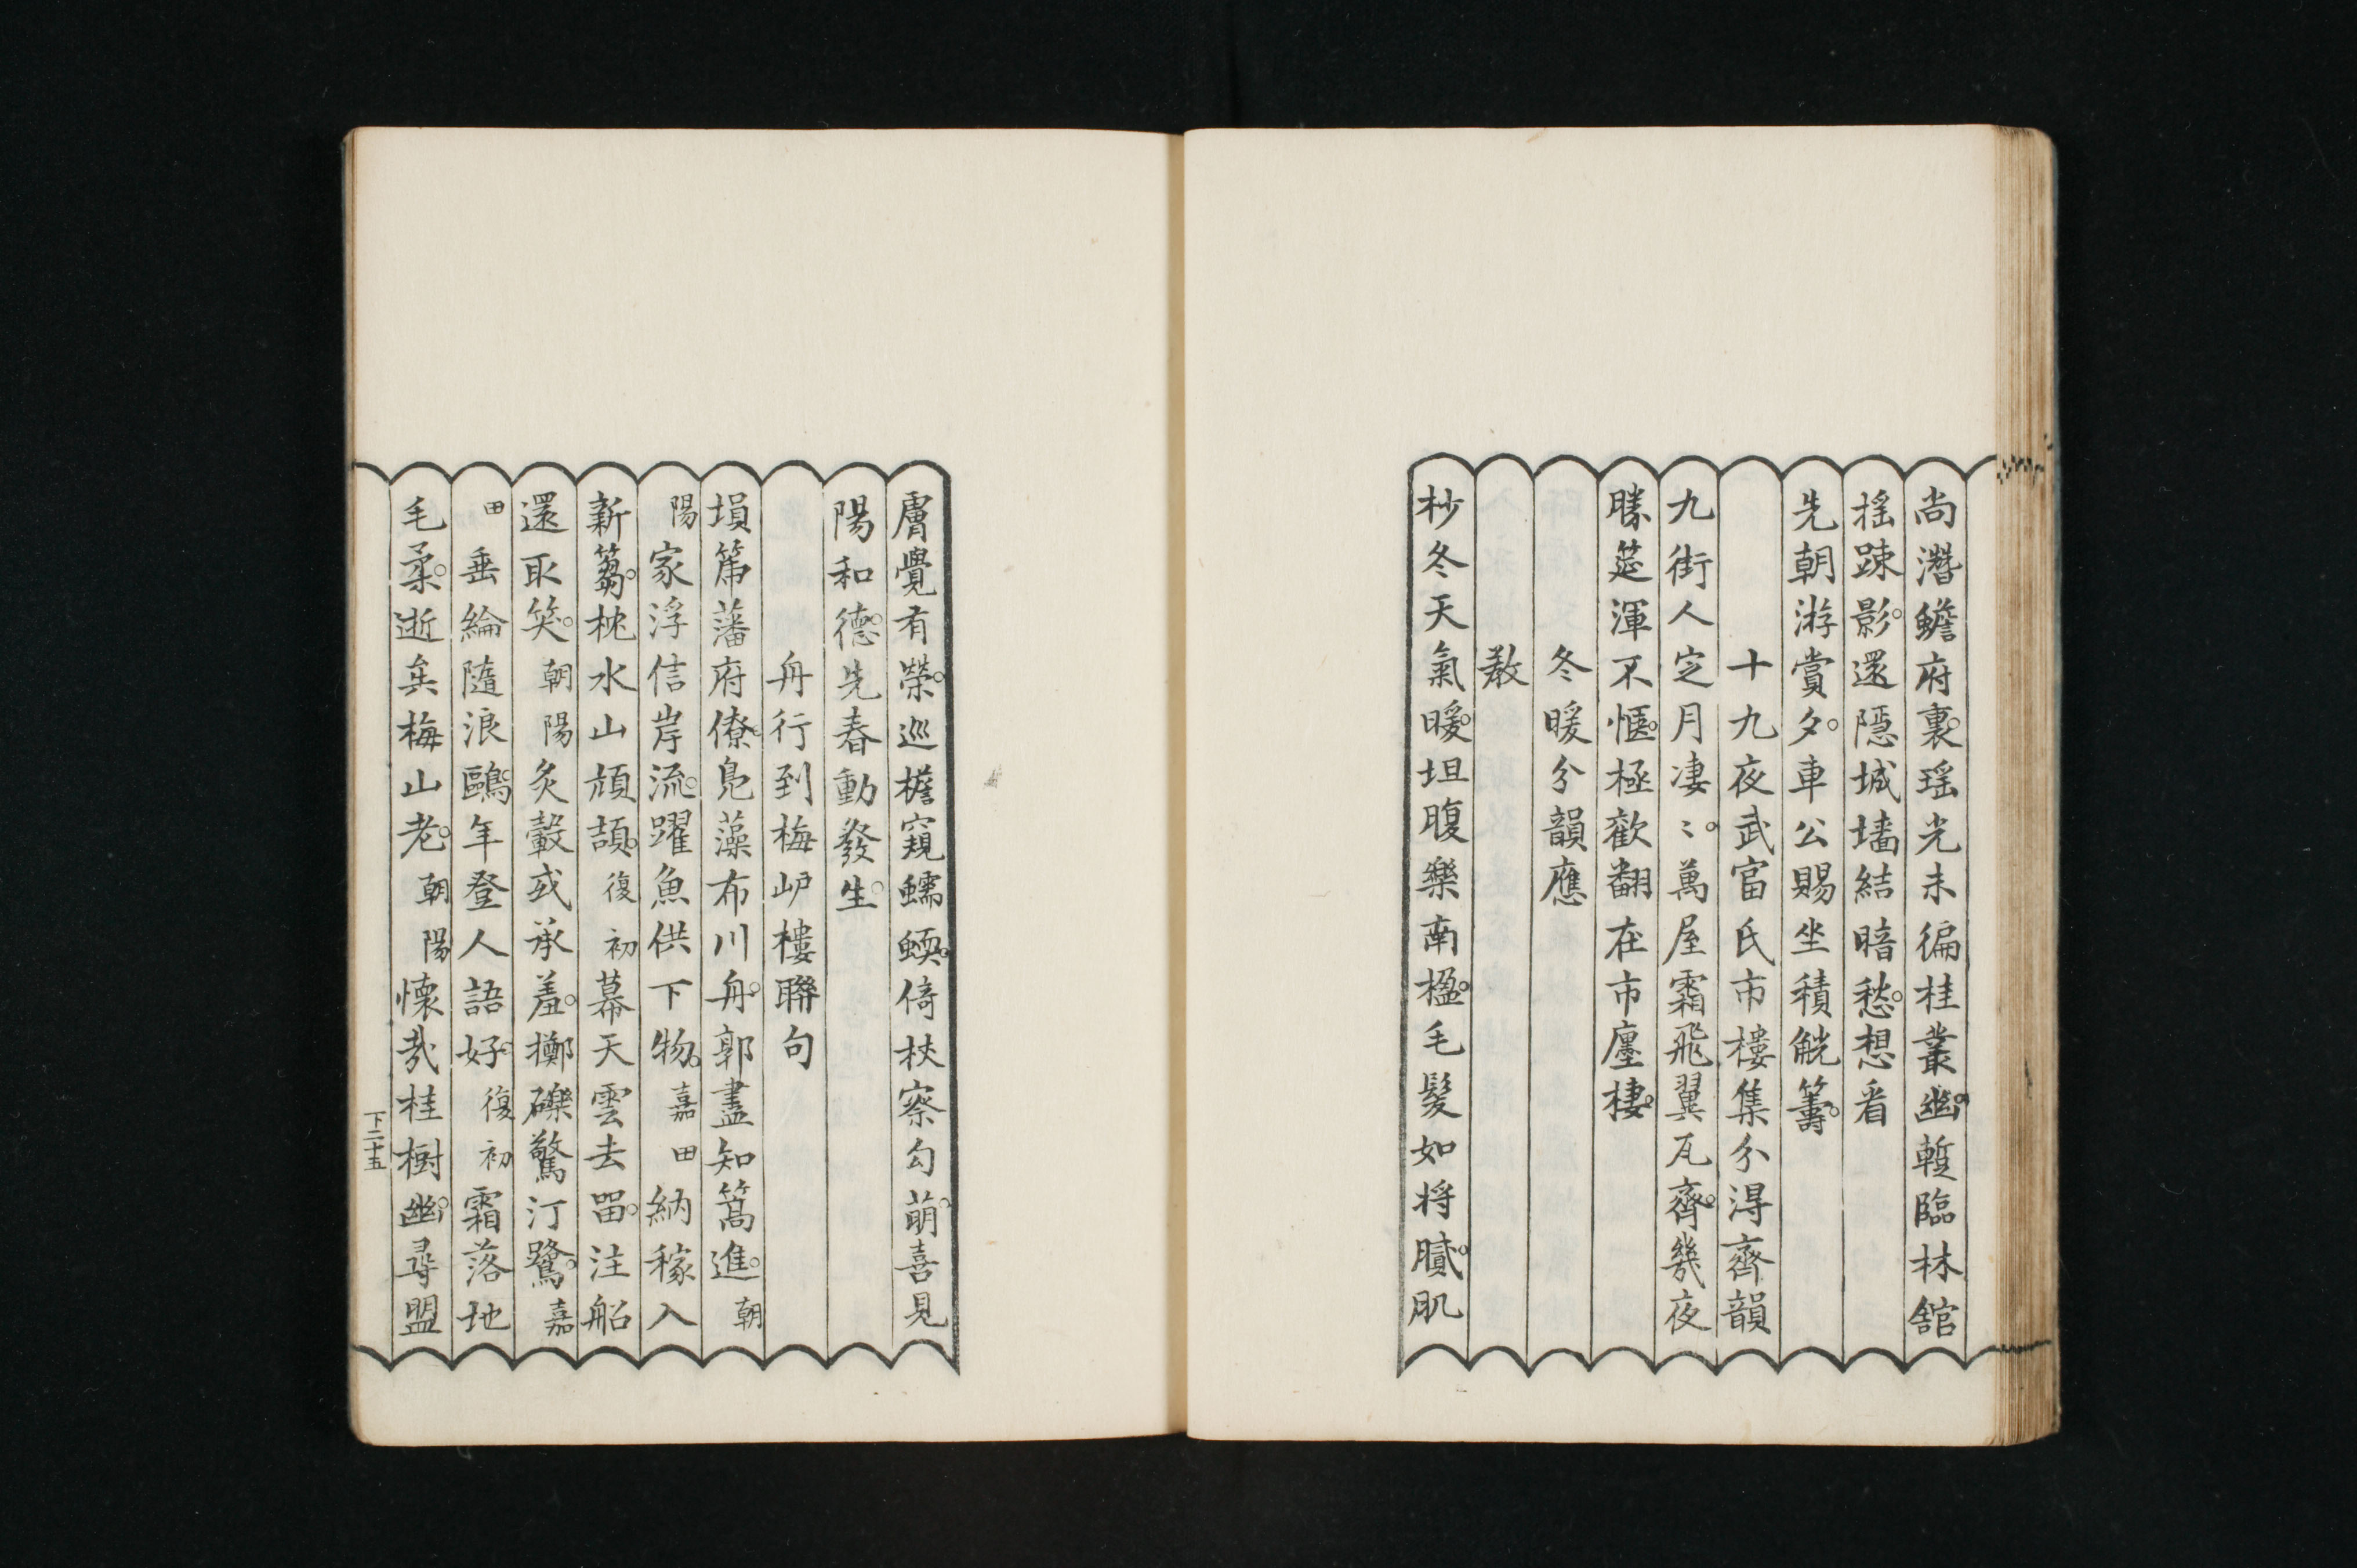 尚潛蟾府裏。瑤光未徧桂叢幽。蹔臨林舘
搖踈影。還隱城墻結暗愁。想看
先朝游賞夕。車公賜坐積觥籌。
十九夜武富氏市樓集分得齊韻
九街人定月凄〻。萬屋霜飛翼瓦齊。幾夜
勝筵渾不愜。極歡翻在市廛棲。
冬暖分韻應
教
杪冬天氣暖。坦腹樂南楹。毛髮如将膩。肌
膚覺有榮。巡檐窺蠕蝡。倚杖察勾萌。喜見
陽和德。先春動發生。
舟行到梅屿樓聯句
塤篪藩府僚。鳧藻布川舟。郭盡知篙進。朝
陽家浮信岸流。躍魚供下物。嘉田納稼入
新蒭。枕水山頎頡。復初幕天雲去畱。注船
還取笑。朝陽炙轂或承羞。擲礫驚汀鷺。嘉
田垂綸隨浪鷗。年登人語好。復初霜落地
毛柔。逝矣梅山老。朝陽懷哉桂樹幽。尋盟
下二十五